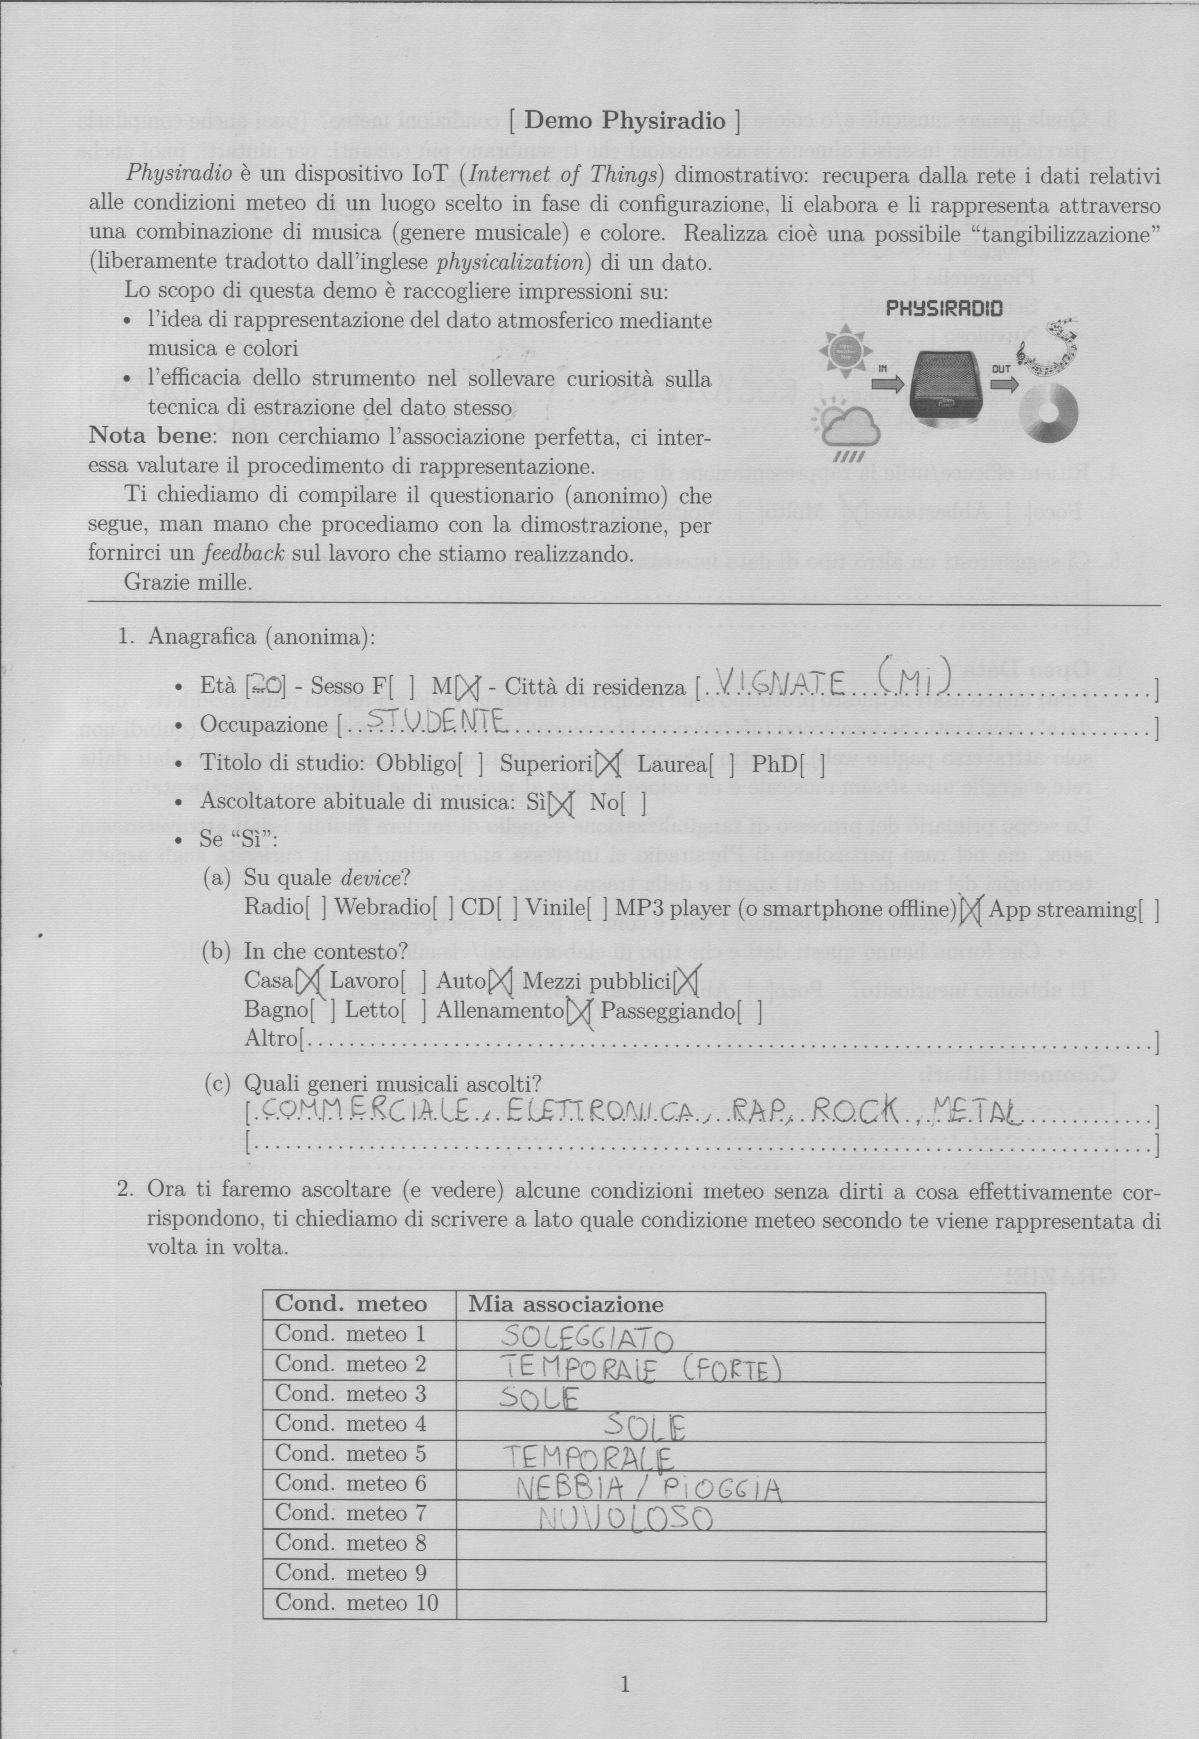 [ Demo Physiradio ]
Physiradio è un dispositivo IoT (Internet of Things) dimostrativo: recupera dalla rete i dati relativi
alle condizioni meteo di un luogo scelto in fase di configurazione, li elabora e li rappresenta attraverso
una combinazione di musica (genere musicale) e colore. Realizza cioè una possibile “tangibilizzazione”
(liberamente tradotto dall'inglese physicalization) di un dato.
Lo scopo di questa demo è raccogliere impressioni su:
• l'idea di rappresentazione del dato atmosferico mediante
musica e colori
• l'efficacia dello strumento nel sollevare curiosità sulla
tecnica di estrazione del dato stesso
Nota bene: non cerchiamo l'associazione perfetta, ci inter-
essa valutare il procedimento di rappresentazione.
Ti chiediamo di compilare il questionario (anonimo) che
segue, man mano che procediamo con la dimostrazione, per
fornirci un feedback sul lavoro che stiamo realizzando.
Grazie mille.
PHYSIRADIO
IN
OUT
1. Anagrafica (anonima):
• Età [20] - Sesso F[ ] M[X] - Città di residenza [. VIGNATE (Mi) ]
• Occupazione [. STUDENTE ]
• Titolo di studio: Obbligo[ ] Superiori[X] Laurea[ ] PhD[ ]
• Ascoltatore abituale di musica: Sì[X] No[ ]
• Se “Sì”:
(a) Su quale device?
Radio[ ] Webradio[ ] CD[ ] Vinile[ ] MP3 player (o smartphone offline)[X] App streaming[ ]
(b) In che contesto?
Casa[X] Lavoro[ ] Auto[X] Mezzi pubblici[X]
Bagno[ ] Letto[ ] Allenamento[X] Passeggiando[ ]
Altro[..........]
(c) Quali generi musicali ascolti?
[. COMMERCIALE, ELETTRONICA, RAP, ROCK, METAL ]
[..........]
2. Ora ti faremo ascoltare (e vedere) alcune condizioni meteo senza dirti a cosa effettivamente cor-
rispondono, ti chiediamo di scrivere a lato quale condizione meteo secondo te viene rappresentata di
volta in volta.
Cond. meteo Mia associazione
Cond. meteo 1 SOLEGGIATO
Cond. meteo 2 TEMPORALE (FORTE)
Cond. meteo 3 SOLE
Cond. meteo 4 SOLE
Cond. meteo 5 TEMPORALE
Cond. meteo 6 NEBBIA / PIOGGIA
Cond. meteo 7 NUVOLOSO
Cond. meteo 8
Cond. meteo 9
Cond. meteo 10
1